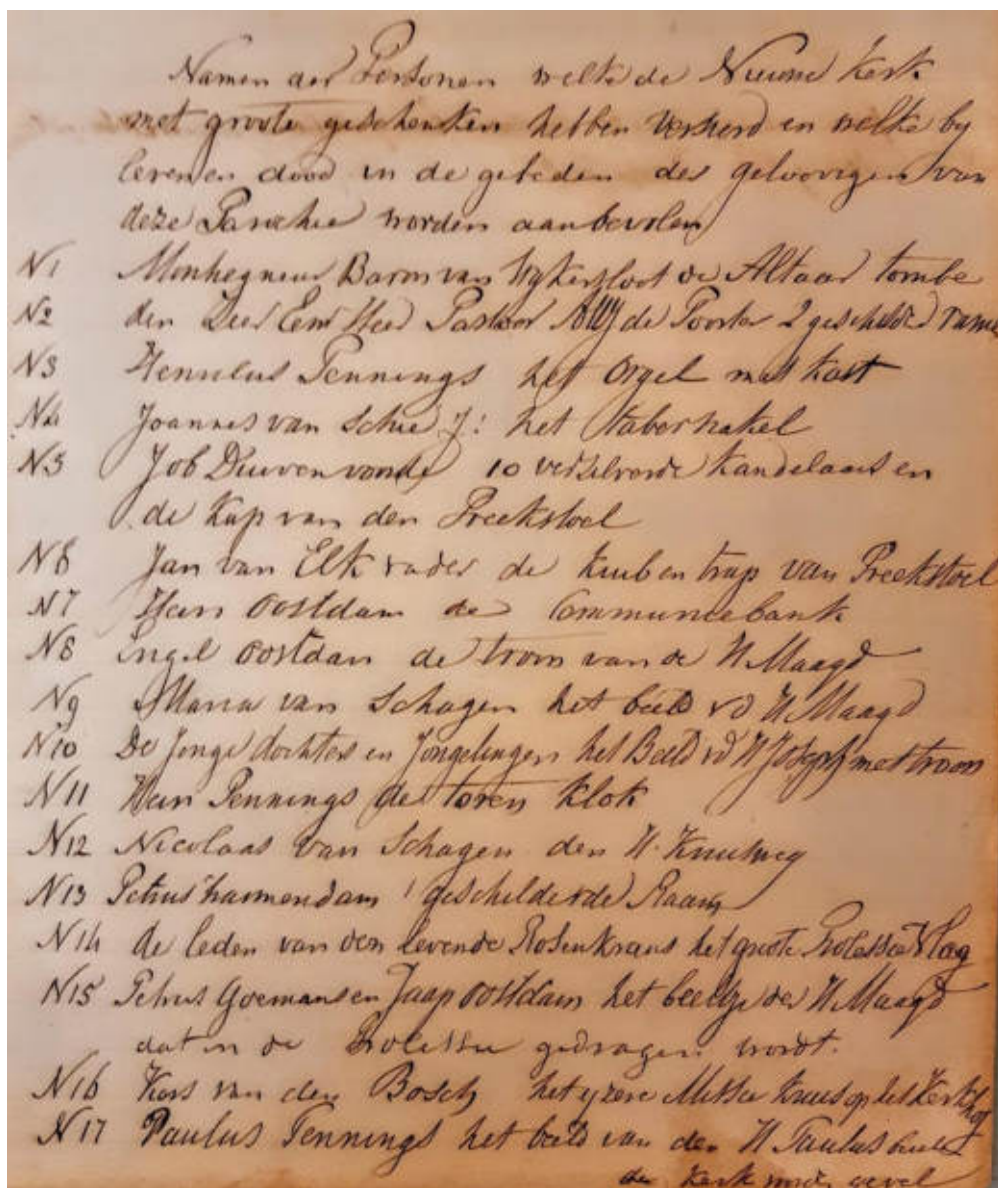 Namen der Personen welke de Nieuwe Kerk
met groote geschenken hebben vereerd en welke by
leven en dood in de gebeden der geloovigen van
deze Parochie worden aanbevolen
N1 Monseigneur Baron van Wykersloot de Altaar tombe
N2 den Zeer Eerw Heer Pastoor de Poorter 2 geschilderd rame
N3 Pennings het Orgel met kast
N4 Joannes van Schie J: het tabernakel
N5 Job Duivenvoorde 10 verzilverde kandelaars en
de kap van den Preekstoel
N6 Jan van Elk vader de kuip en trap van Preekstoel
N7 Hein Oostdam de Communiebank
N8 Engel Oostdam de troon van de H Maagd
N9 Maria van Schagen het beeld vd H Maagd
N10 De Jonge dochters en Jongelingen het Beeld vd H Joseph met troon
N11 Hein Pennings de toren klok
N12 Nicolaas van Schagen den H. Kruisweg
N13 Petrus Warmendam 1 geschilderde Raam
N14 de leden van den levende Rosenkrans het groote Prolessie Vlag
N15 Petrus Goemans en Jaap Oostdam het beeltje der H Maagd
dat in de Prolessie gedragen wordt.
N16 Kors van den Bosch het yzere Missie kruis op het Kerkhof
N17 Paulus Pennings het beeld van den H Paulus buite
de kerk gevel